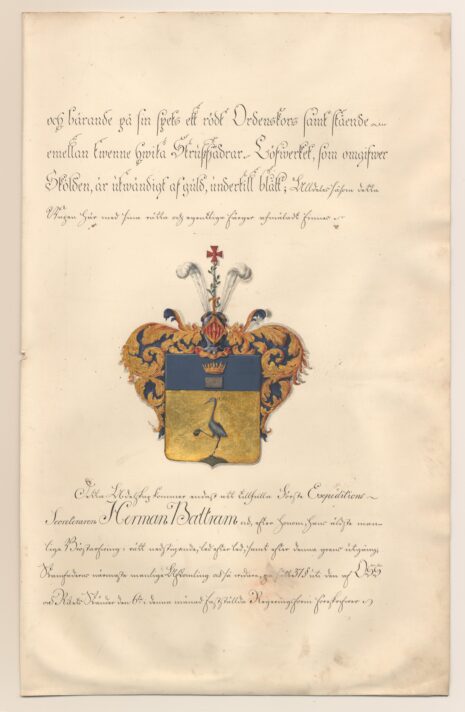 och bärande på sin spets ett rödt Ordenskors samt stående
emellan twenne hwita Strutsfjädrar. Löfwerket, som omgifwer
Skölden, är utwändigt af guld, undertill blått; Alldeles såsom detta
Wapen här med sina rätta och egentliga färger afmåladt finnes
Detta Adelskap kommer endast att tillfalla Förste Expeditions
Secreteraren Herman Battram och, efter honom, hans äldste man-
liga Bröstarfwinge i rätt nedstigande led efter led, samt efter denna grens utgång,
Stamfaderns närmaste manliga Ättling och så widare, som § 37
och Riksens Ständer den 6te i denna månad fastställda Regeringsform föreskrifwer